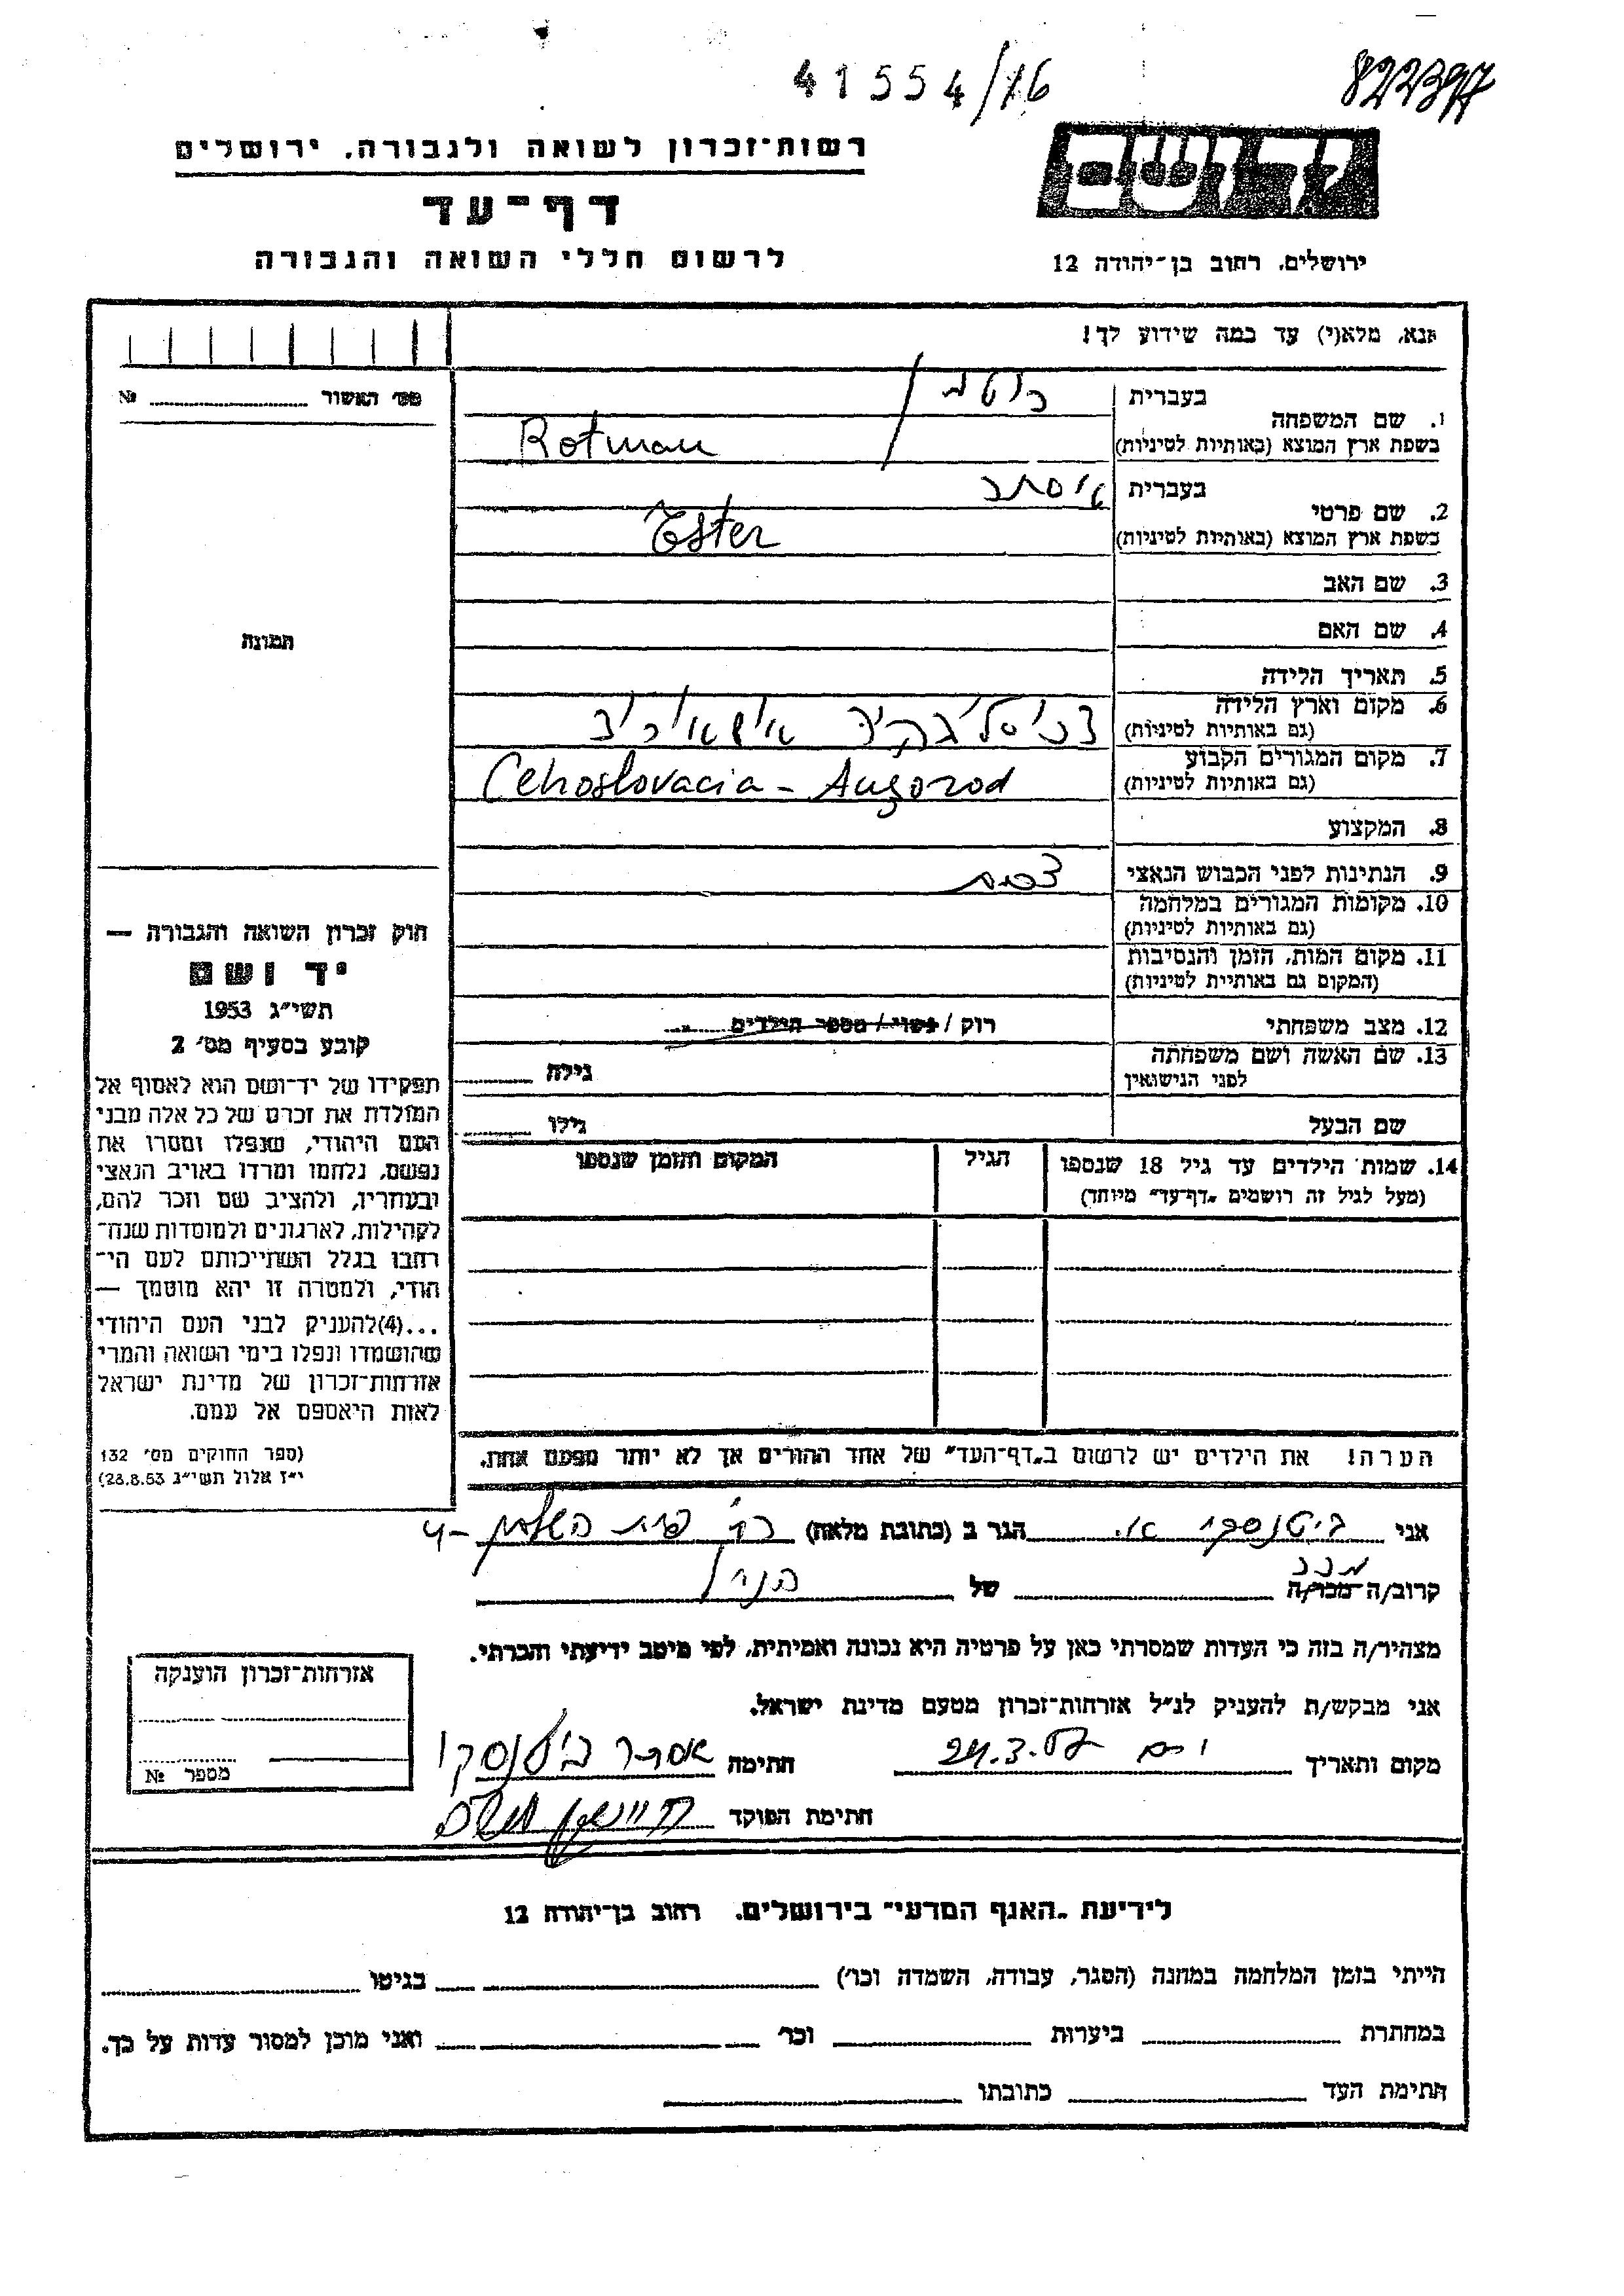 41554/16
822397
רשות־זכרון לשואה ולגבורה, ירושלים
דף־עד
לרשום חללי השואה והגבורה
יד ושם
ירושלים, רחוב בן־יהודה 12
אנא, מלא(י) עד כמה שידוע לך!
מס׳ האשור № 
1. שם המשפחה
בעברית רוטמן
בשפת ארץ המוצא (באותיות לטיניות) Rotman
2. שם פרטי
בעברית
בשפת ארץ המוצא (באותיות לטיניות) Ester
3. שם האב
4. שם האם
5. תאריך הלידה
6. מקום וארץ הלידה
(גם באותיות לטיניות)
7. מקום המגורים הקבוע
(גם באותיות לטיניות) Cehoslovacia - Augorod
8. המקצוע
9. הנתינות לפני הכבוש הנאצי
10. מקומות המגורים במלחמה
(גם באותיות לטיניות)
11. מקום המות, הזמן והנסיבות
(המקום גם באותיות לטיניות)
12. מצב משפחתי רוק / נשוי / מספר הילדים
13. שם האשה ושם משפחתה
לפני הנישואין גילה
שם הבעל גילו
14. שמות הילדים עד גיל 18 שנספו הגיל המקום והזמן שנספו
(מעל לגיל זה רושמים „דף־עד״ מיוחד)
תמונה
חוק זכרון השואה והגבורה —
יד ושם
תשי״ג 1953
קובע בסעיף מס׳ 2
תפקידו של יד־ושם הוא לאסוף אל
המולדת את זכרם של כל אלה מבני
העם היהודי, שנפלו ומסרו את
נפשם, נלחמו ומרדו באויב הנאצי
ובעוזריו, ולהציב שם וזכר להם,
לקהילות, לארגונים ולמוסדות שנח־
רבו בגלל השתייכותם לעם הי־
הודי, ולמטרה זו יהא מוסמך —
...(4)להעניק לבני העם היהודי
שהושמדו ונפלו בימי השואה והמרי
אזרחות־זכרון של מדינת ישראל
לאות היאספם אל עמם.
(ספר החוקים מס׳ 132
י״ז אלול תשי״ג 28.8.53)
הערה! את הילדים יש לרשום ב„דף־העד״ של אחד ההורים אך לא יותר מפעם אחת.
אני הגר ב (כתובת מלאה)
קרוב/ה מכר/ה של
מצהיר/ה בזה כי העדות שמסרתי כאן על פרטיה היא נכונה ואמיתית, לפי מיטב ידיעתי והכרתי.
אני מבקש/ת להעניק לנ״ל אזרחות־זכרון מטעם מדינת ישראל.
מקום ותאריך 24.3.57 חתימה
חתימת הפוקד
אזרחות־זכרון הוענקה
מספר №
לידיעת „האגף המדעי״ בירושלים, רחוב בן־יהודה 12
הייתי בזמן המלחמה במחנה (הסגר, עבודה, השמדה וכו׳) בגיטו
במחתרת ביערות וכו׳ ואני מוכן למסור עדות על כך.
חתימת העד כתובתו